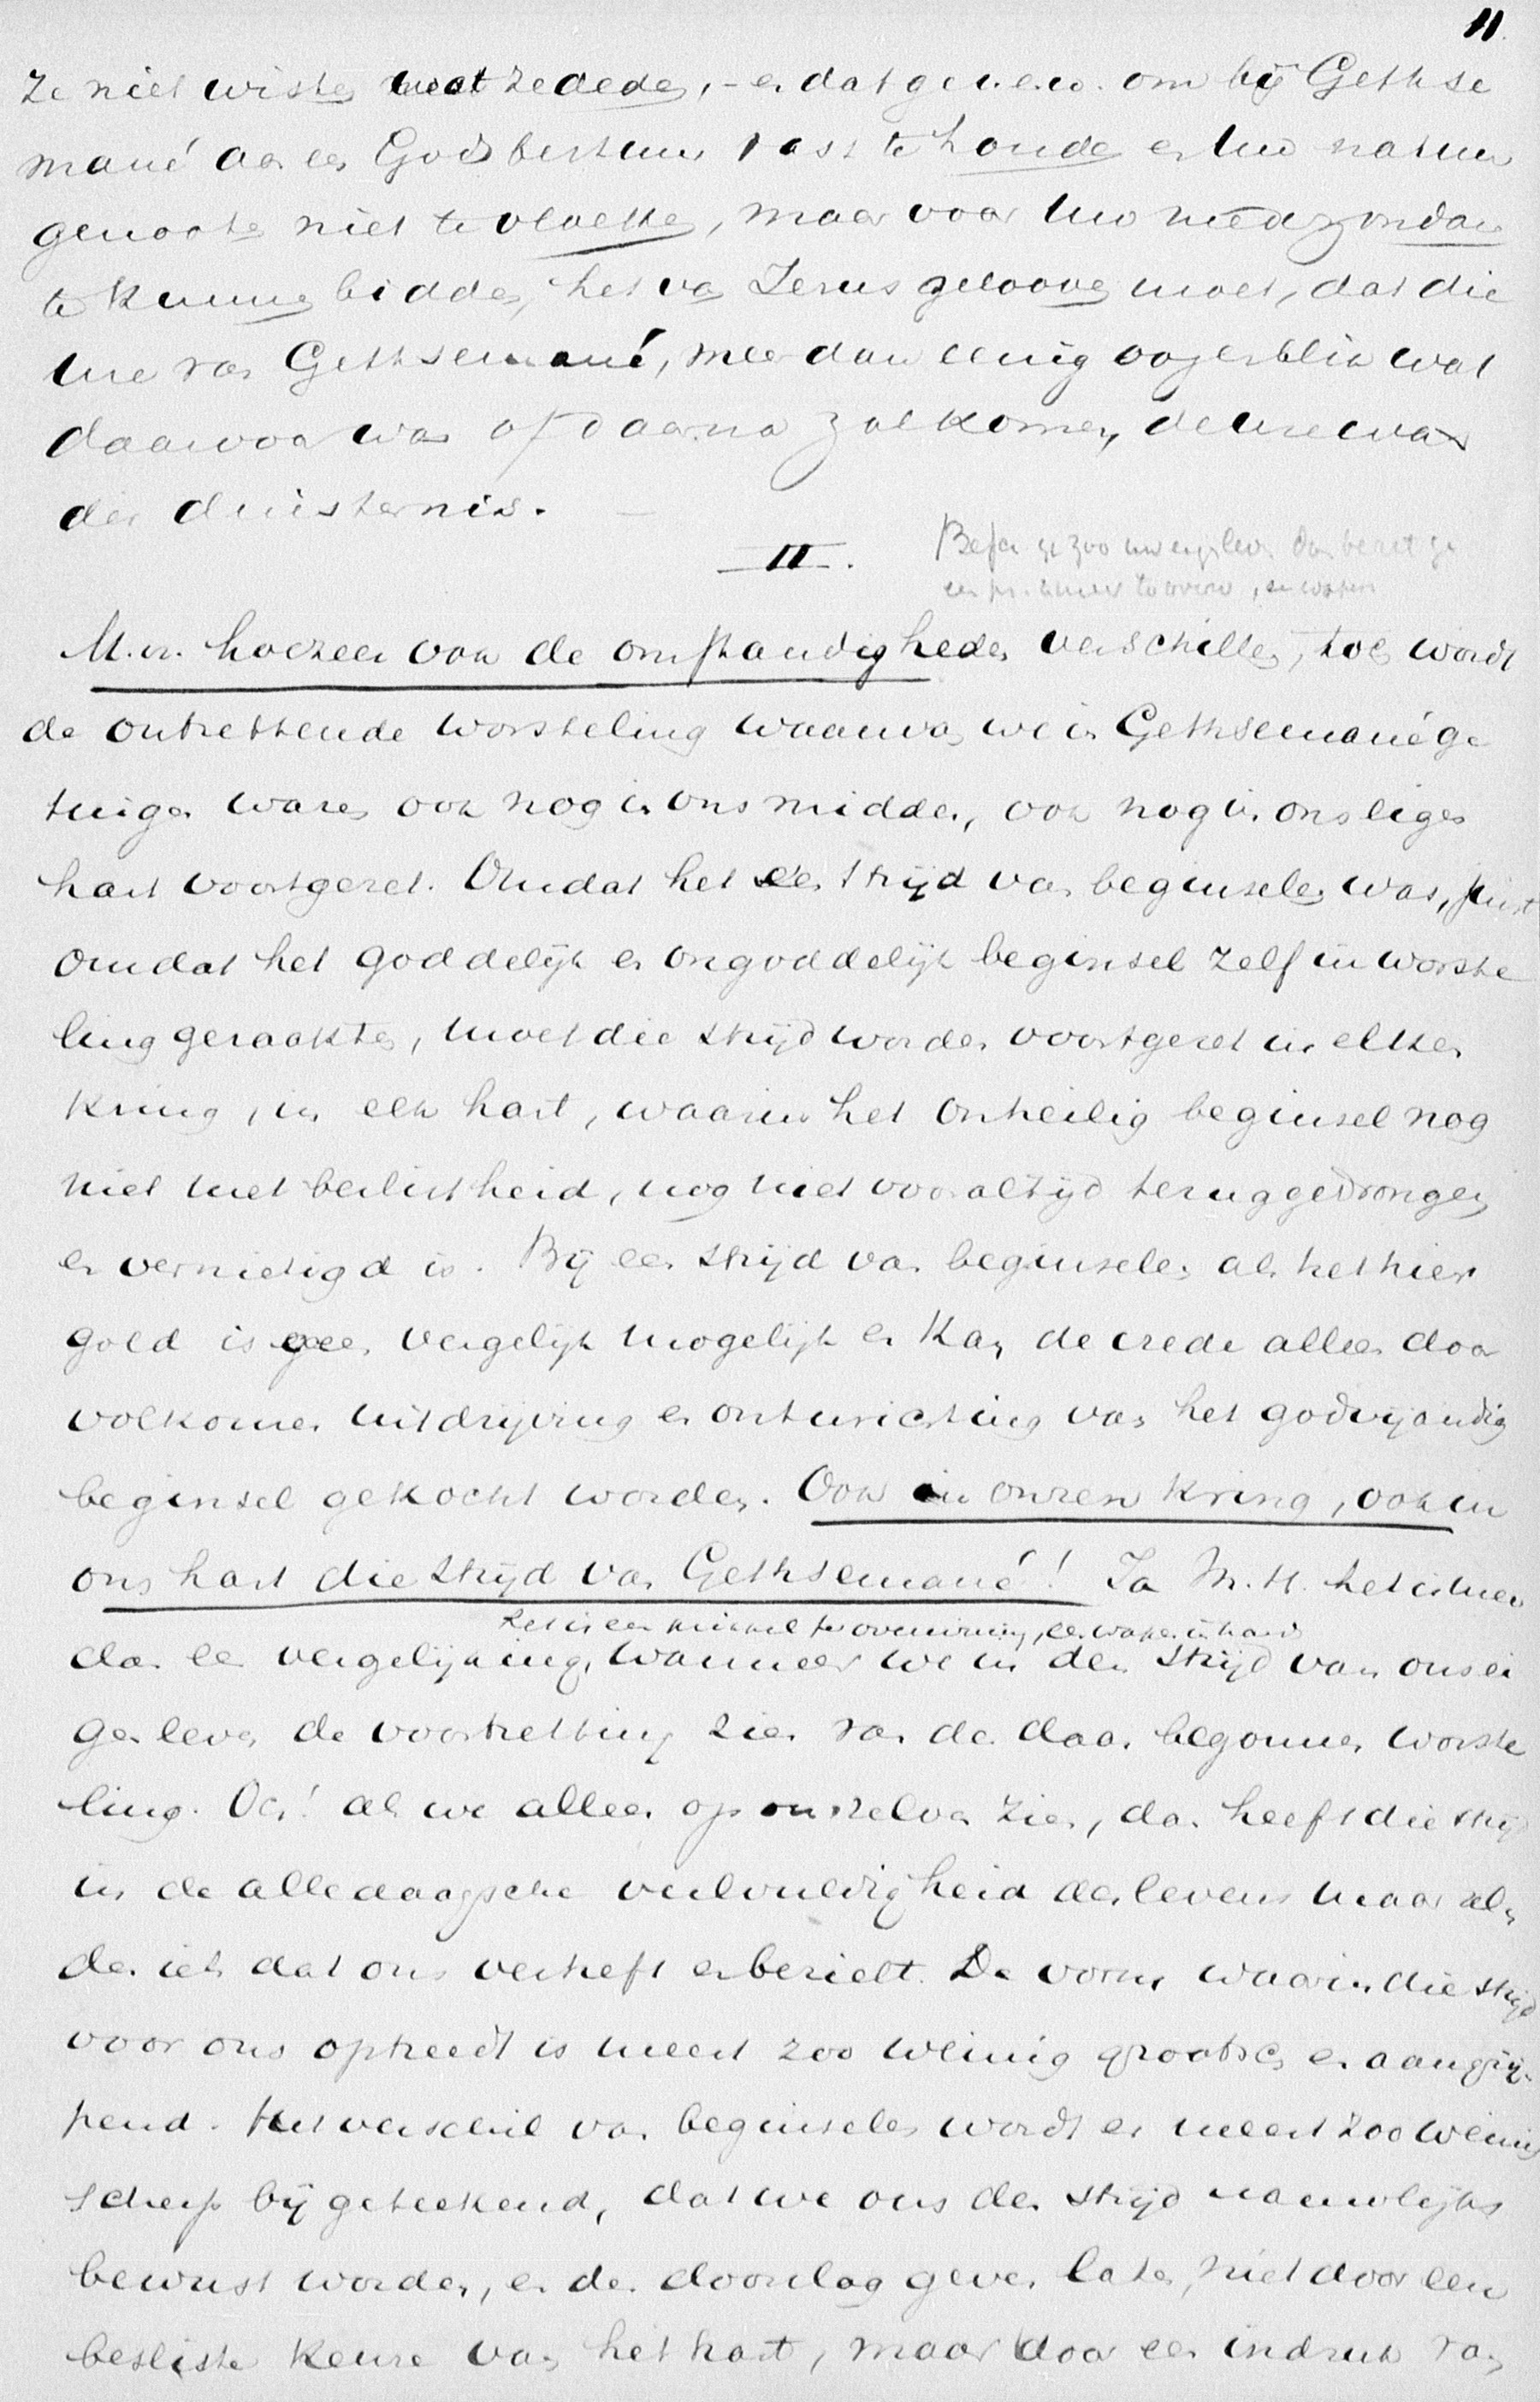 11.
ze niet wisten wat ze deden, – en dat ge u. e.w. om bij Gethse
mané aan een Godsbestuur vast te houden en Uw natuur
genooten niet te vloeken, maar voor Uw medezondaren
te kunnen bidden, het van Jezus gelooven moet, dat die
ure van Gethsemané, meer dan eenig oogenblik wat
daarvoor was of daarna zal komen, de ure was
der duisternis. —
II.
Besef ge zoo uw eigen leven dan bezit ge
een pr. te overw , en wapen
M. v. hoezeer ook de omstandigheden verschillen, toch wordt
de ontzettende worsteling waarvan we in Gethsemané ge
tuigen waren ook nog in ons midden, ook nog in ons eigen
hart voortgezet. Omdat het een strijd van beginselen was, juist
omdat het goddelijk en ongoddelijk beginsel zelf in worste
ling geraakten, moet die strijd worden voortgezet in elken
kring, in elk hart, waarin het onheilig beginsel nog
niet met beslistheid, nog niet voor altijd teruggedrongen
en vernietigd is. Bij een strijd van beginselen als het hier
gold is geen vergelijk mogelijk en kan de vrede alleen door
volkomen uitdrijving en ontwrichting van het godvijandig
beginsel gekocht worden. Ook in onzen kring, ook in
ons hart die strijd van Gethsemané! Ja M. H. het is meer
Het is een prikkel ter overwinning, een wapen in hand
dan een vergelijking, wanneer we in den strijd van ons ei
gen leven de voortzetting zien van de daar begonnen worste
ling. Och! als we alleen op onszelven zien, dan heeft die strijd
in de alledaagsche veelvuldigheid des levens maar zel
den iets dat ons verheft en bezielt. De vorm waarin die strijd
voor ons optreedt is meest zoo weinig grootsch en aangrij-
pend. Het verschil van beginselen wordt er meest zoo weinig
scherp bij geteekend, dat we ons den strijd nauwlijks
bewust worden, en den doorslag geven laten, niet door een
besliste keuze van het hart, maar door een indruk van